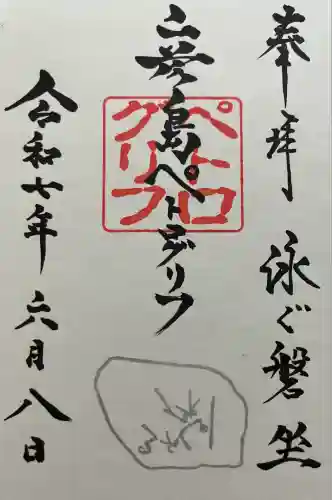 奉拝 泳ぐ磐坐
彦島ペトログリフ
ペトロ
グリフ
令和七年六月八日